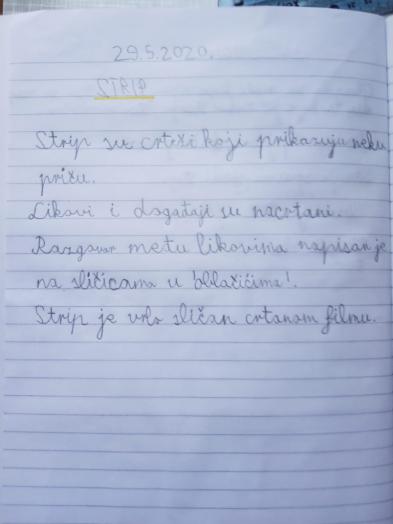 29.5.2020.
STRIP
Strip su crteži koji prikazuju neku
priču.
Likovi i događaji su nacrtani.
Razgovor među likovima napisan je
na sličicama u "oblačićima".
Strip je vrlo sličan crtanom filmu.